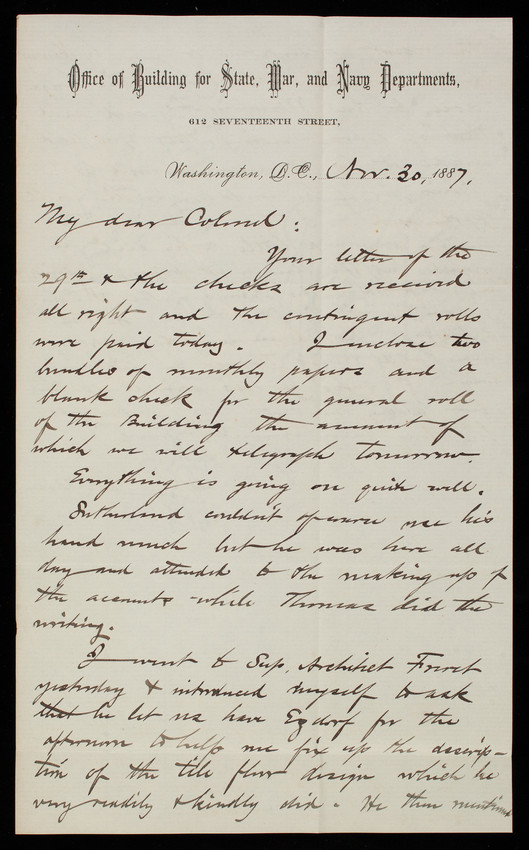 Office of Building for State, War, and Navy Departments,
612 SEVENTEENTH STREET,
Washington, D.C., Nov. 30, 1887.
My dear Colonel:
Your letter of the
29th & the checks are received
all right and the contingent rolls
were paid today. I enclose two
bundles of monthly papers and a
blank check for the general roll
of the Building the amount of
which we will telegraph tomorrow.
Everything is going on quite well.
Sutherland couldn't of course use his
hand much but he was here all
day and attended to the making up of
the accounts while Thomas did the
writing.
I went to Sup. Architect Freret
yesterday & introduced myself to ask
that he let us have Ezdorf for the
afternoon to help me fix up the descrip-
tion of the tile floor design which he
very readily & kindly did. He then mentioned